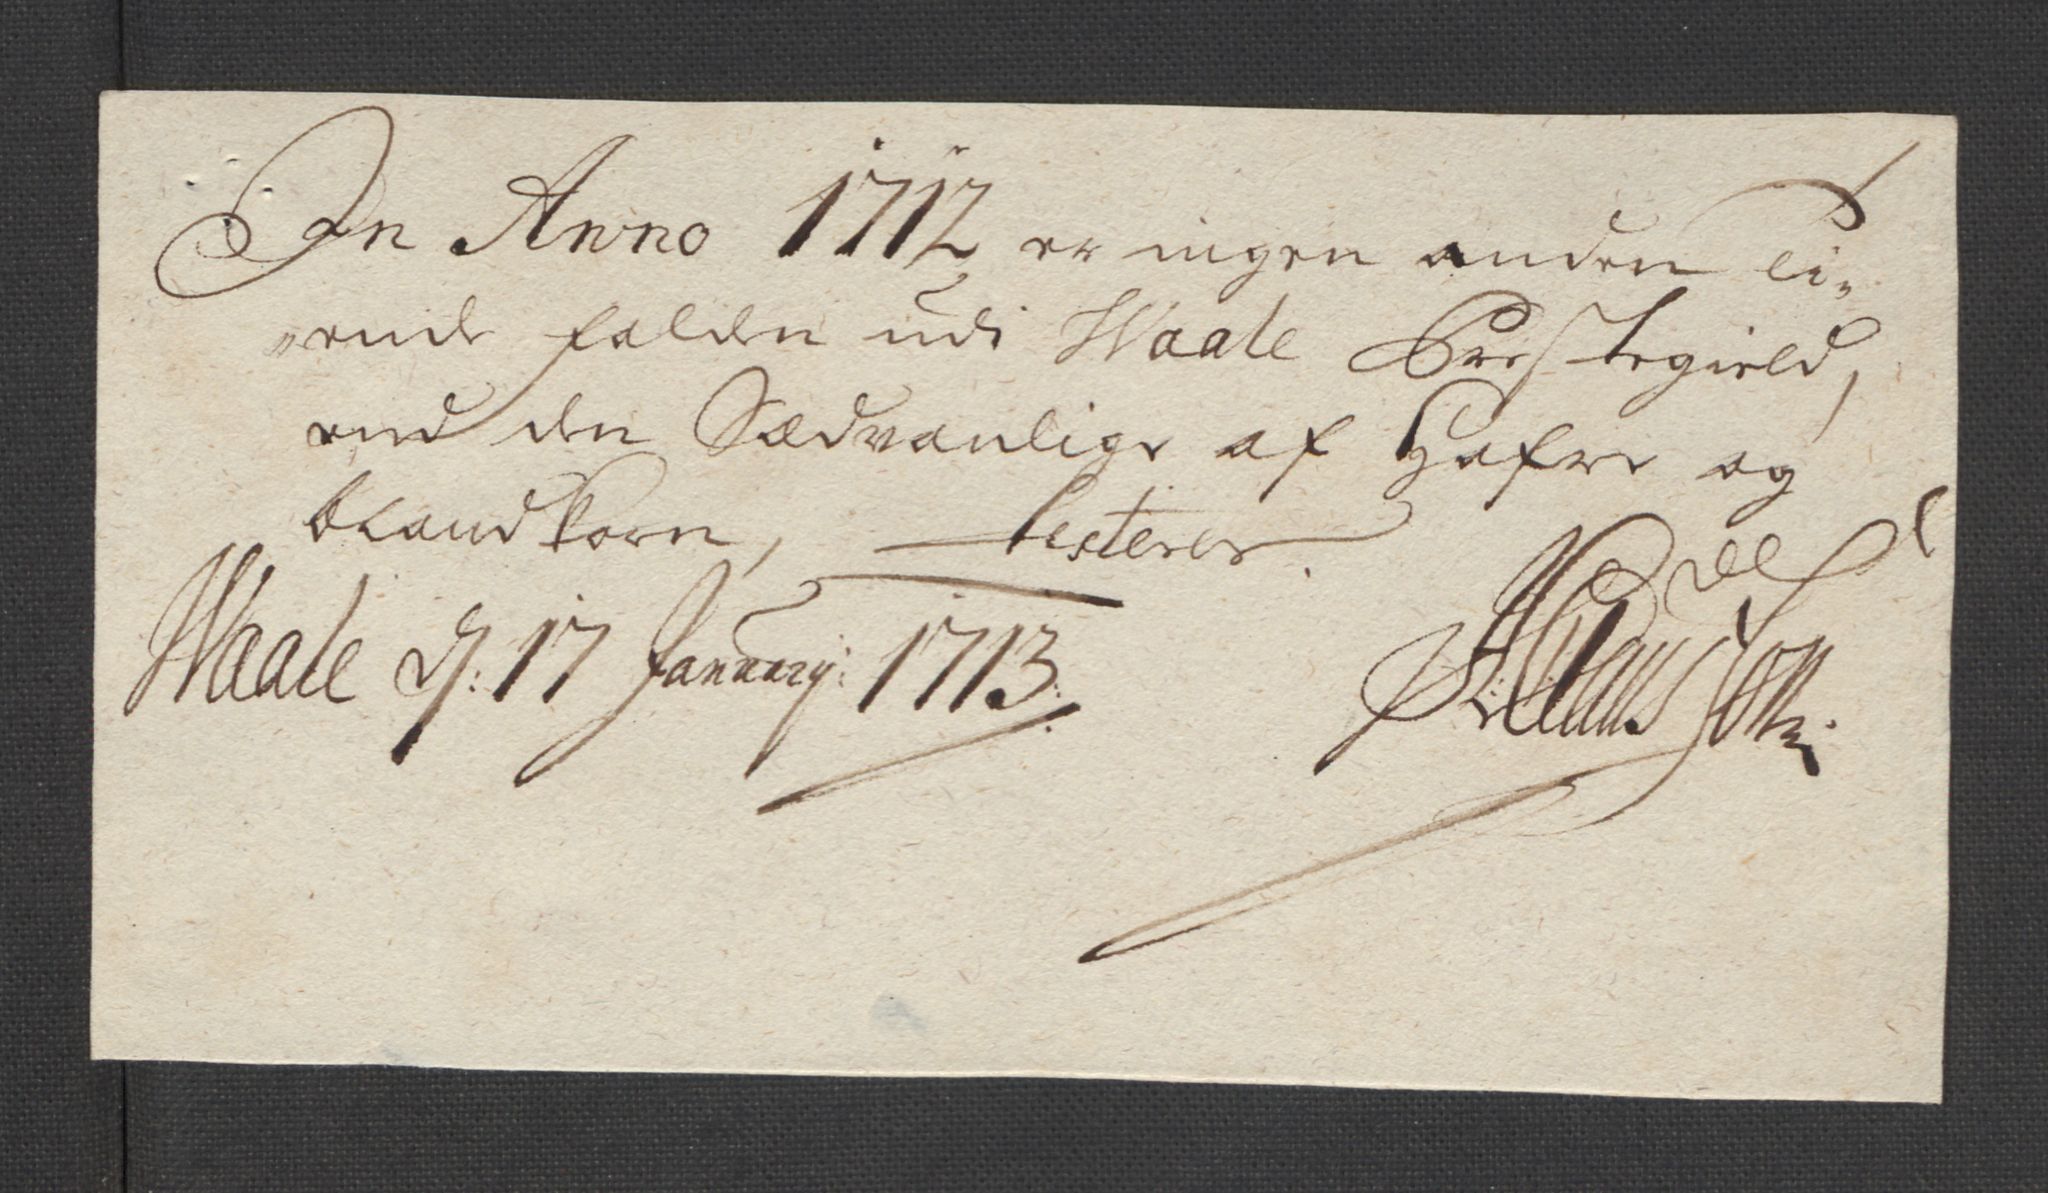 In Anno 1712 er ingen anden Ti-
ende falden udi Waale Prestegield,
end den Sædvanlige af Hafre og
blandkorn, testerer
Waale d: 17 January: 1713.
Clausson